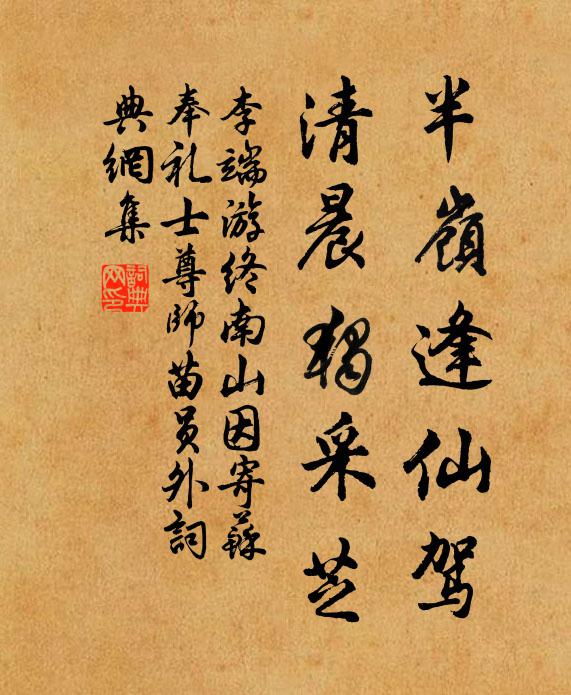 半嶺逢仙駕
清晨獨采芝
李端游終南山因寄蘇
奉礼士尊師苗員外詞
典網集
詞典網印